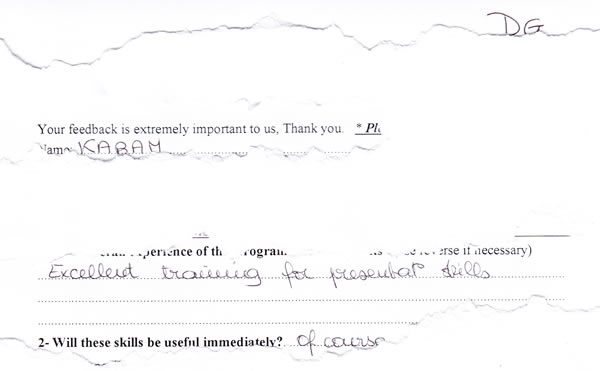 DG
Your feedback is extremely important to us, Thank you. * Pl
KARAM
of th rogram. erse if necessary)
Excellent training for presentat skills
2- Will these skills be useful immediately? Of course